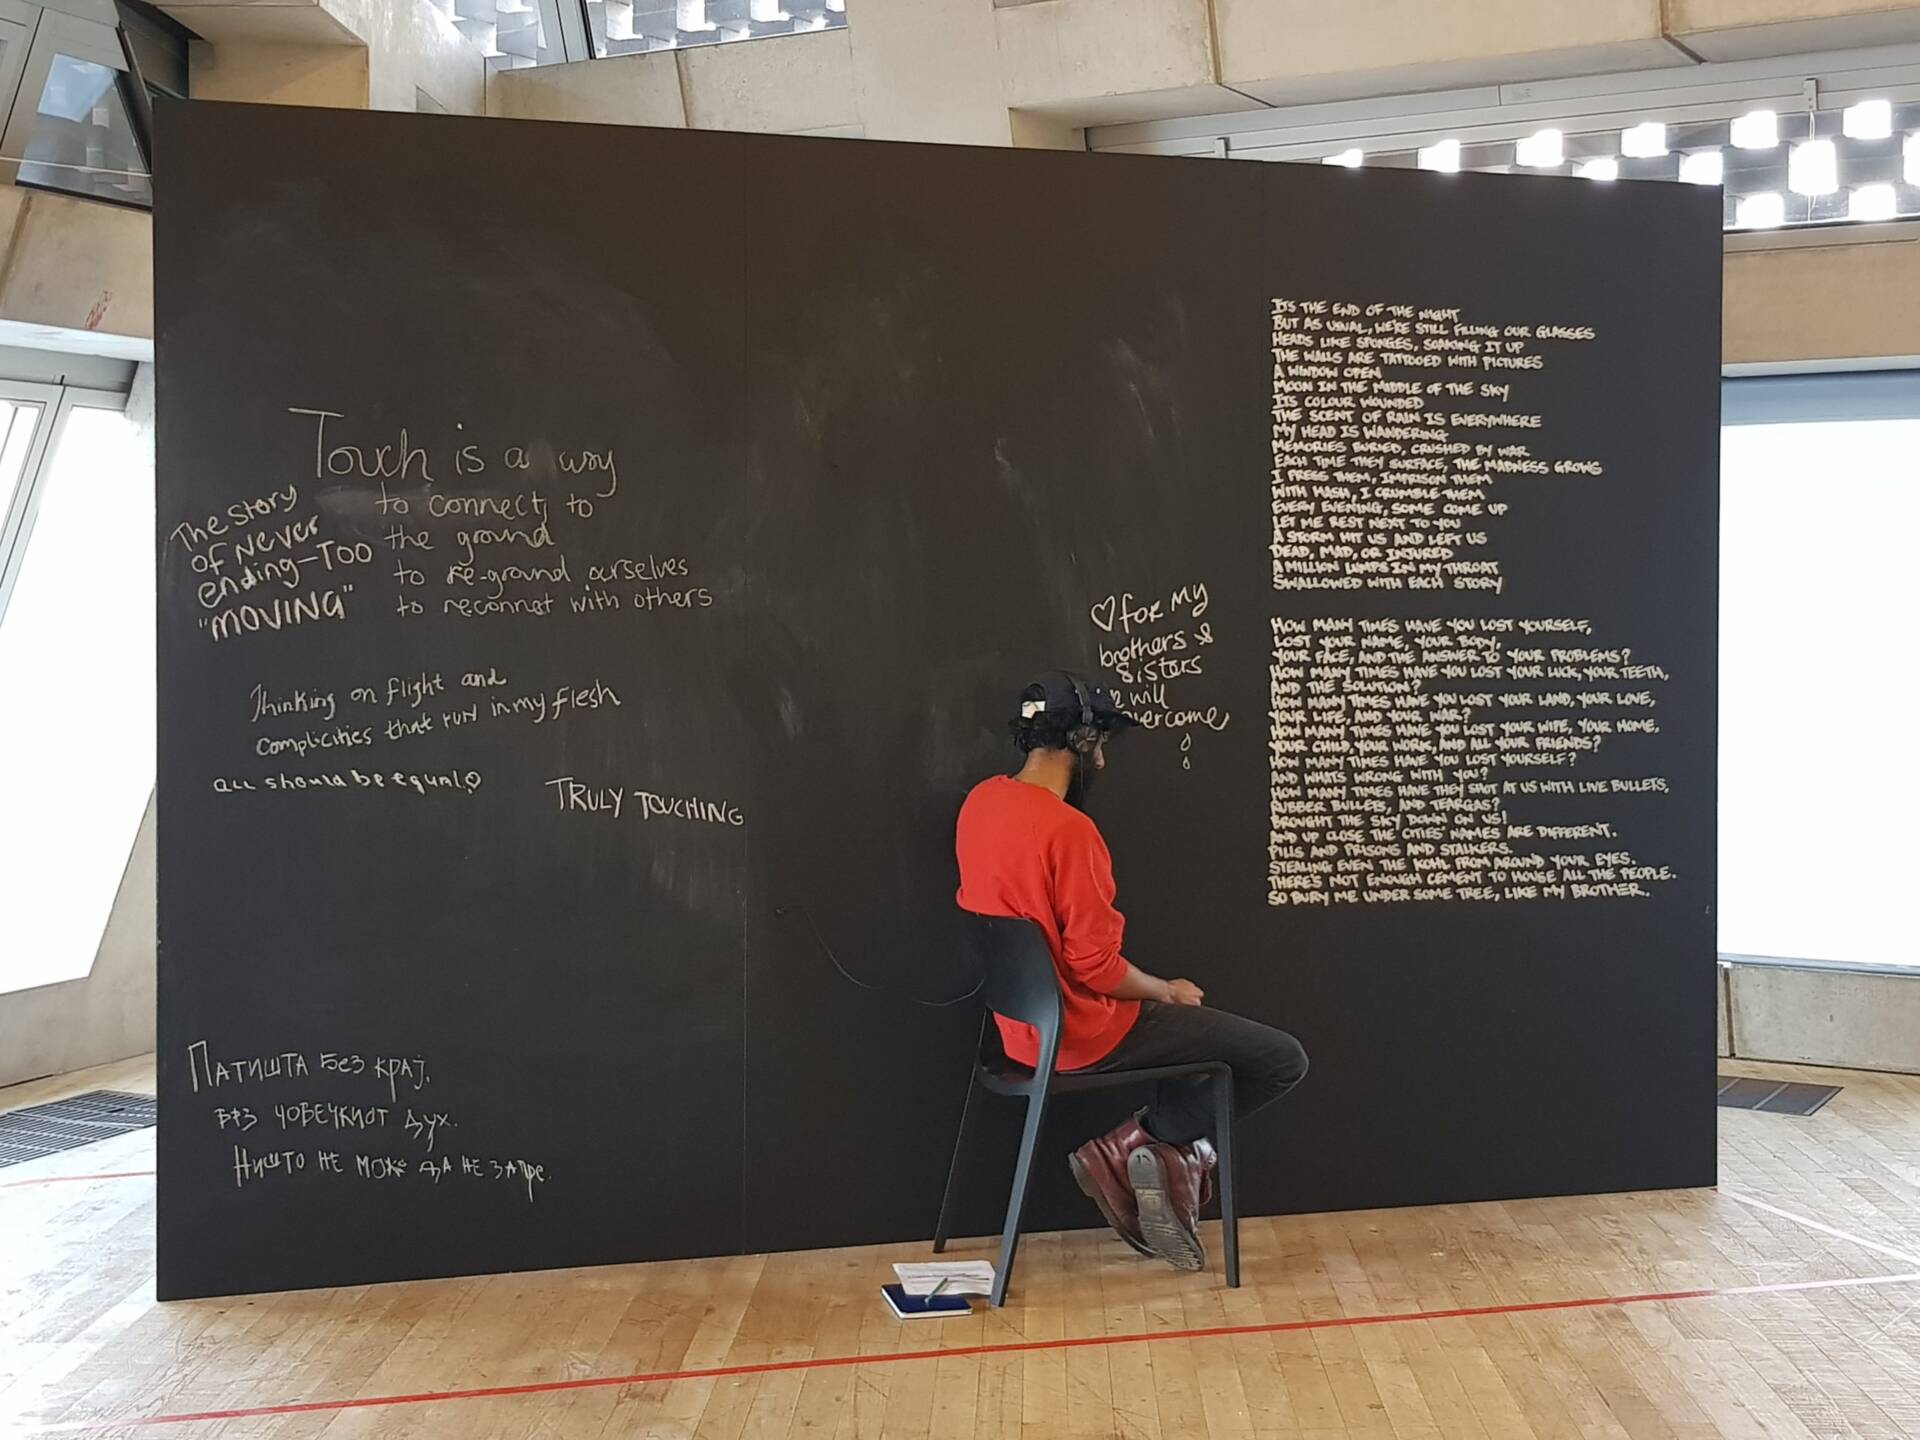 Touch is a way
to connect to
the ground
to re-ground ourselves
to reconnet with others
The Story
of Never
ending-Too
"MOVING"
Thinking on flight and
complicities that run in my flesh
all should be equal ♡
TRULY TOUCHING
Патишта без крај,
врз човечкиот дух.
Ништо не може да не запре.
♡ for my
brothers &
sisters
will
ITS THE END OF THE NIGHT
BUT AS USUAL, WE'RE STILL FILLING OUR GLASSES
HEADS LIKE SPONGES, SOAKING IT UP
THE WALLS ARE TATTOOED WITH PICTURES
A WINDOW OPEN
MOON IN THE MIDDLE OF THE SKY
ITS COLOUR WOUNDED
THE SCENT OF RAIN IS EVERYWHERE
MY HEAD IS WANDERING
MEMORIES BURIED, CRUSHED BY WAR
EACH TIME THEY SURFACE, THE MADNESS GROWS
I PRESS THEM, IMPRISON THEM
WITH HASH, I CRUMBLE THEM
EVERY EVENING, SOME COME UP
LET ME REST NEXT TO YOU
A STORM HIT US AND LEFT US
DEAD, MAD, OR INJURED
A MILLION LUMPS IN MY THROAT
SWALLOWED WITH EACH STORY
HOW MANY TIMES HAVE YOU LOST YOURSELF,
LOST YOUR NAME, YOUR BODY,
YOUR FACE, AND THE ANSWER TO YOUR PROBLEMS?
HOW MANY TIMES HAVE YOU LOST YOUR LUCK, YOUR TEETH,
AND THE SOLUTION?
HOW MANY TIMES HAVE YOU LOST YOUR LAND, YOUR LOVE,
YOUR LIFE, AND YOUR WAR?
HOW MANY TIMES HAVE YOU LOST YOUR WIFE, YOUR HOME,
YOUR CHILD, YOUR WORK, AND ALL YOUR FRIENDS?
HOW MANY TIMES HAVE YOU LOST YOURSELF?
AND WHATS WRONG WITH YOU?
HOW MANY TIMES HAVE THEY SHOT AT US WITH LIVE BULLETS,
RUBBER BULLETS, AND TEARGAS?
BROUGHT THE SKY DOWN ON US!
AND UP CLOSE THE CITIES' NAMES ARE DIFFERENT.
PILLS AND PRISONS AND STALKERS.
STEALING EVEN THE KOHL FROM AROUND YOUR EYES.
THERE'S NOT ENOUGH CEMENT TO HOUSE ALL THE PEOPLE.
SO BURY ME UNDER SOME TREE, LIKE MY BROTHER.